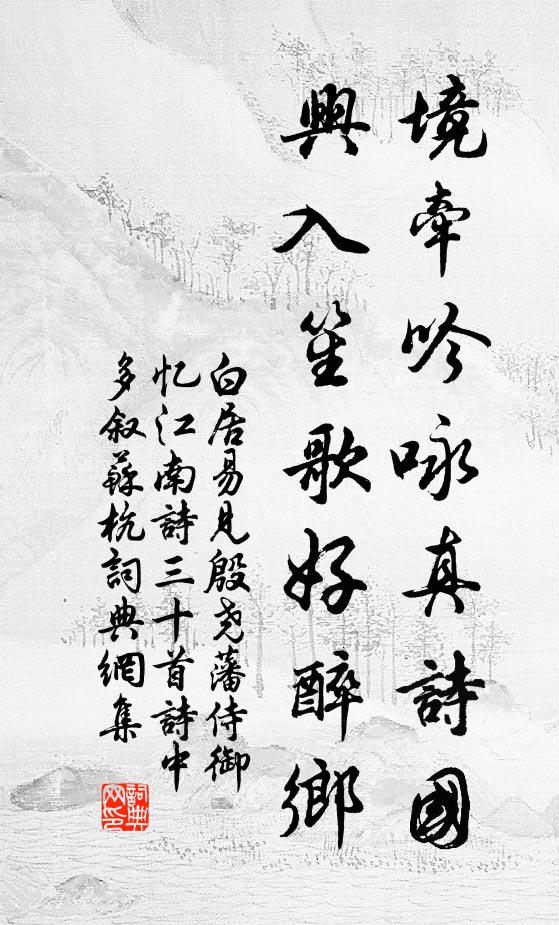 境牽吟咏真詩國
興入笙歌好醉鄉
白居易見殷尧藩侍御
忆江南詩三十首詩中
多叙蘇杭詞典網集
詞典网印